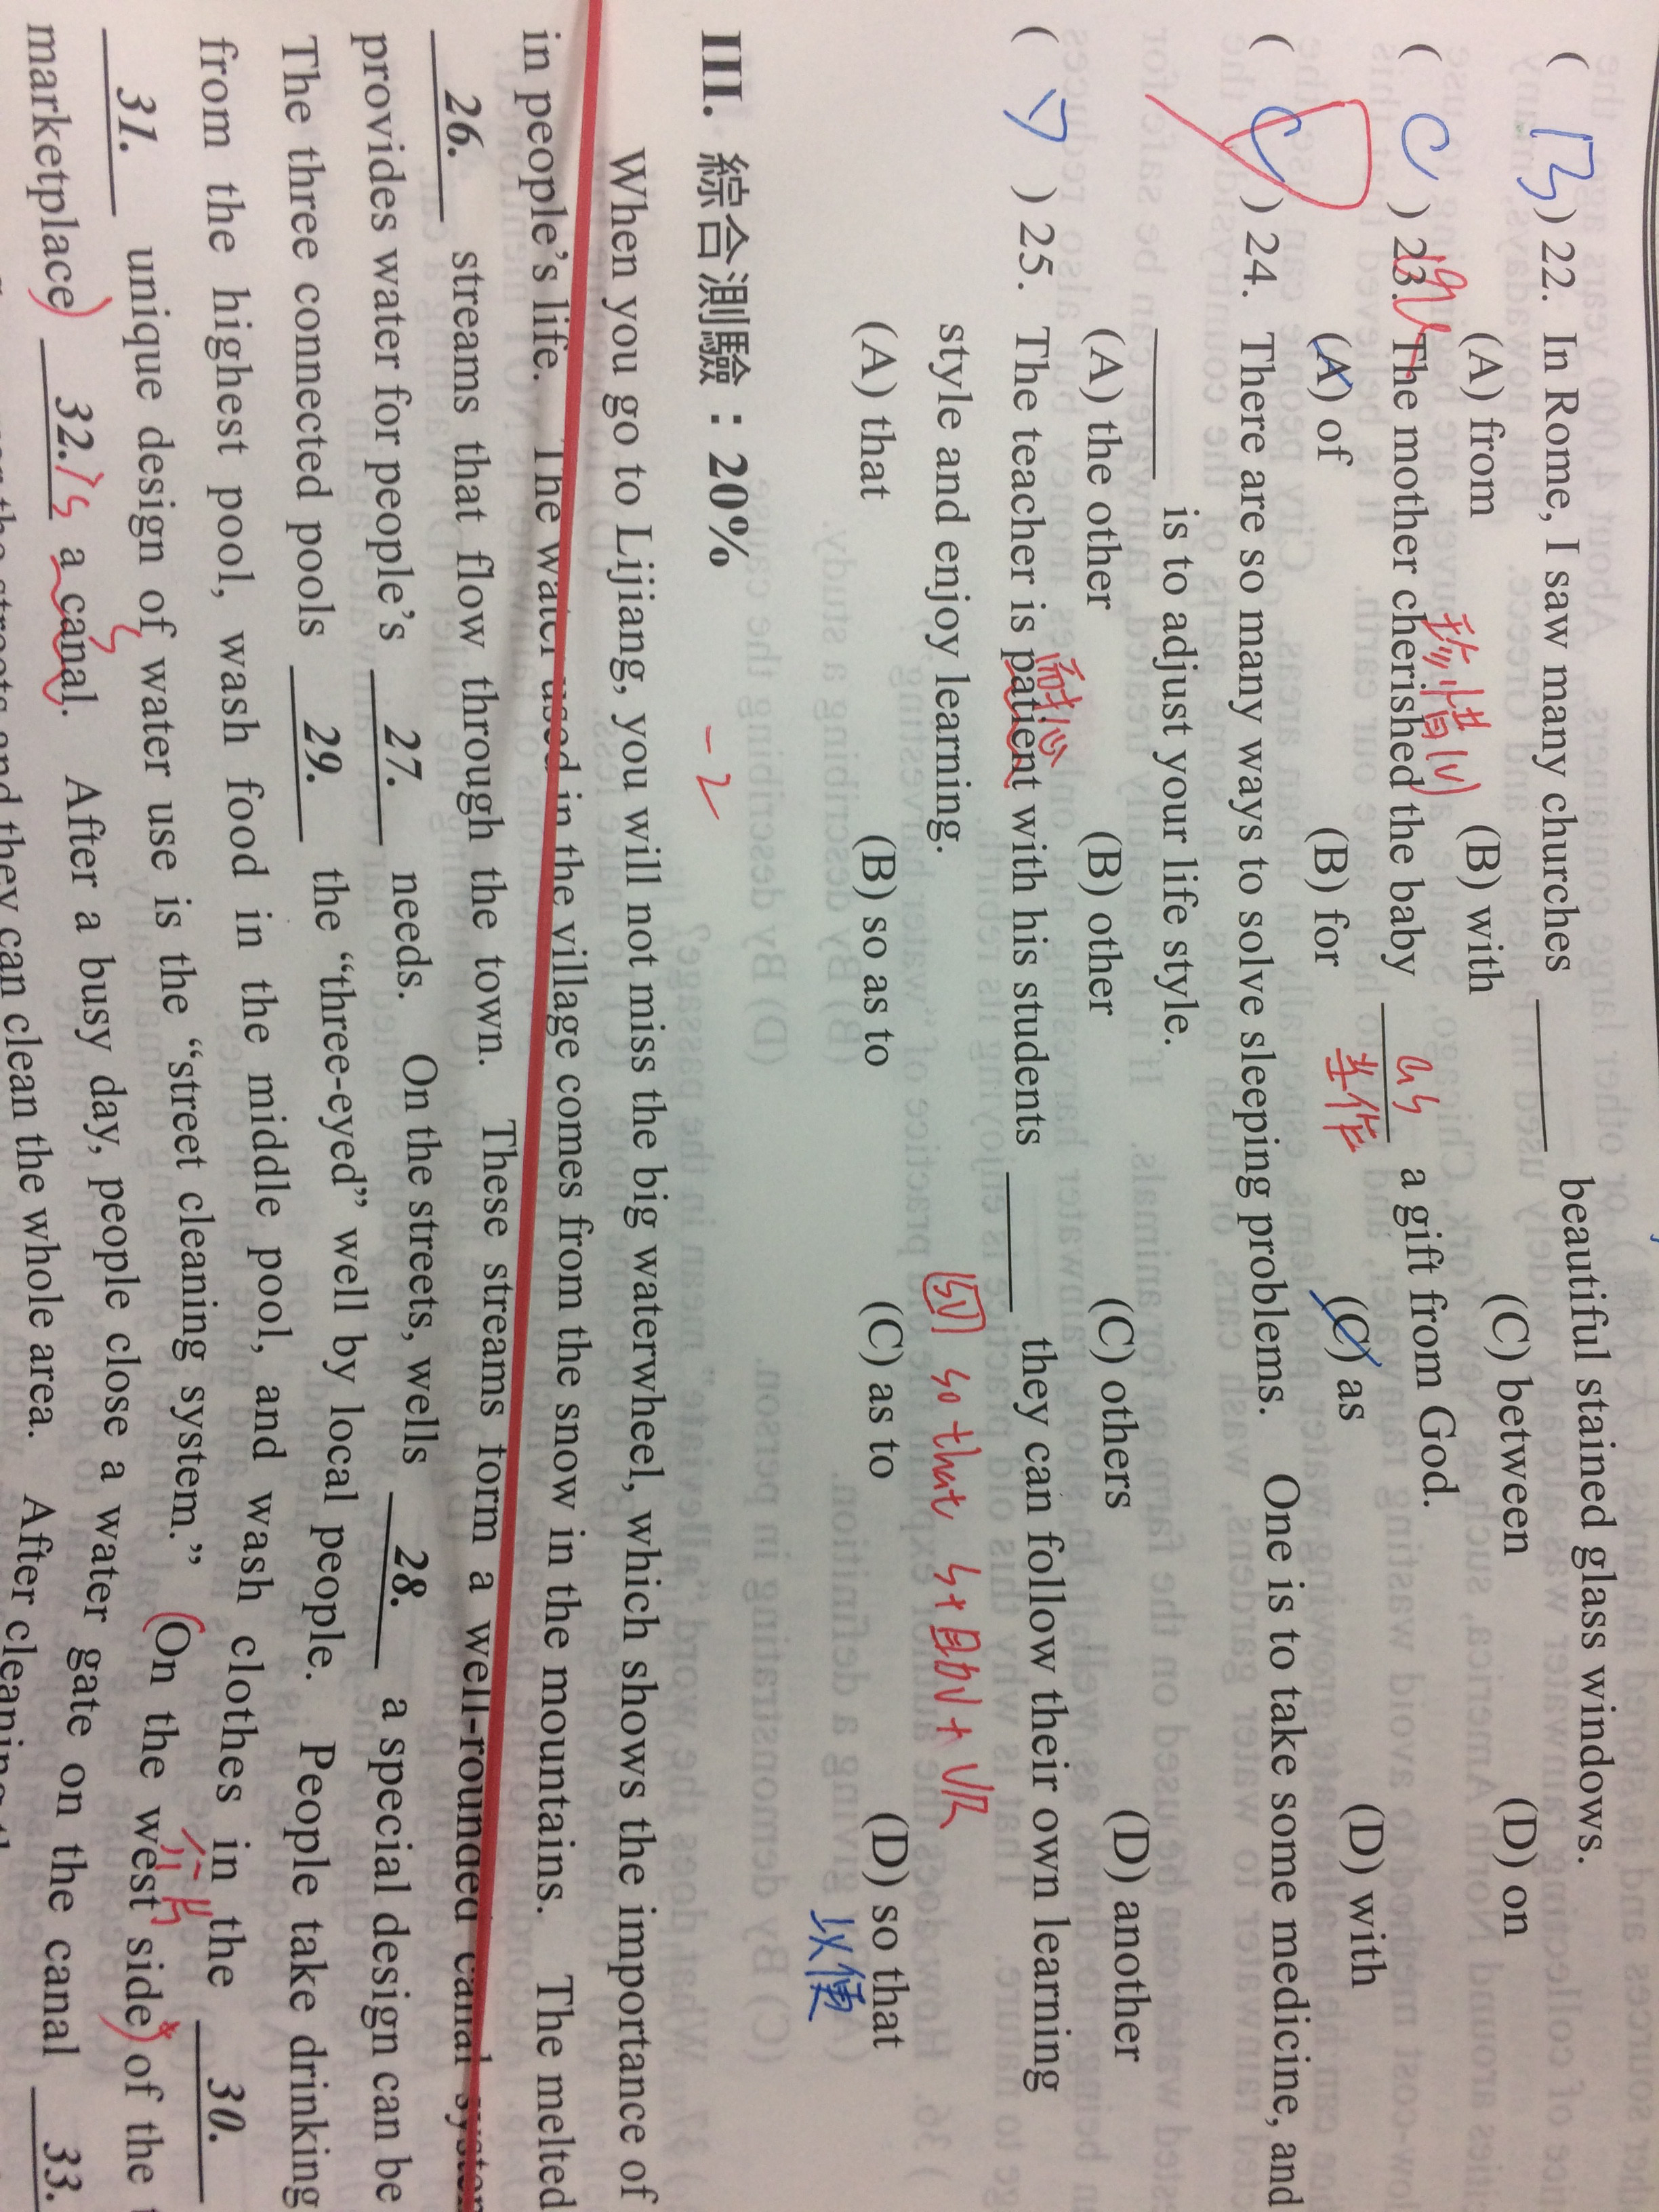 ( B ) 22. In Rome, I saw many churches ______ beautiful stained glass windows.
(A) from (B) with (C) between (D) on
珍惜(v) as
( C ) 23. The mother cherished the baby ______ a gift from God.
當作
(A) of (B) for (C) as (D) with
( C ) 24. There are so many ways to solve sleeping problems. One is to take some medicine, and
______ is to adjust your life style.
(A) the other (B) other (C) others (D) another
耐心
( D ) 25. The teacher is patient with his students ______ they can follow their own learning
style and enjoy learning. so that S+助V+VR
(A) that (B) so as to (C) as to (D) so that
以便
III. 綜合測驗:20% -2
When you go to Lijiang, you will not miss the big waterwheel, which shows the importance of
in people's life. The water used in the village comes from the snow in the mountains. The melted
26. streams that flow through the town. These streams form a well-rounded canal system
provides water for people's 27. needs. On the streets, wells 28. a special design can be
The three connected pools 29. the "three-eyed" well by local people. People take drinking
from the highest pool, wash food in the middle pool, and wash clothes in the 30.
31. unique design of water use is the "street cleaning system." (On the west side) of the
marketplace) 32. is a canal. After a busy day, people close a water gate on the canal 33.
the streets and they can clean the whole area. After cleaning